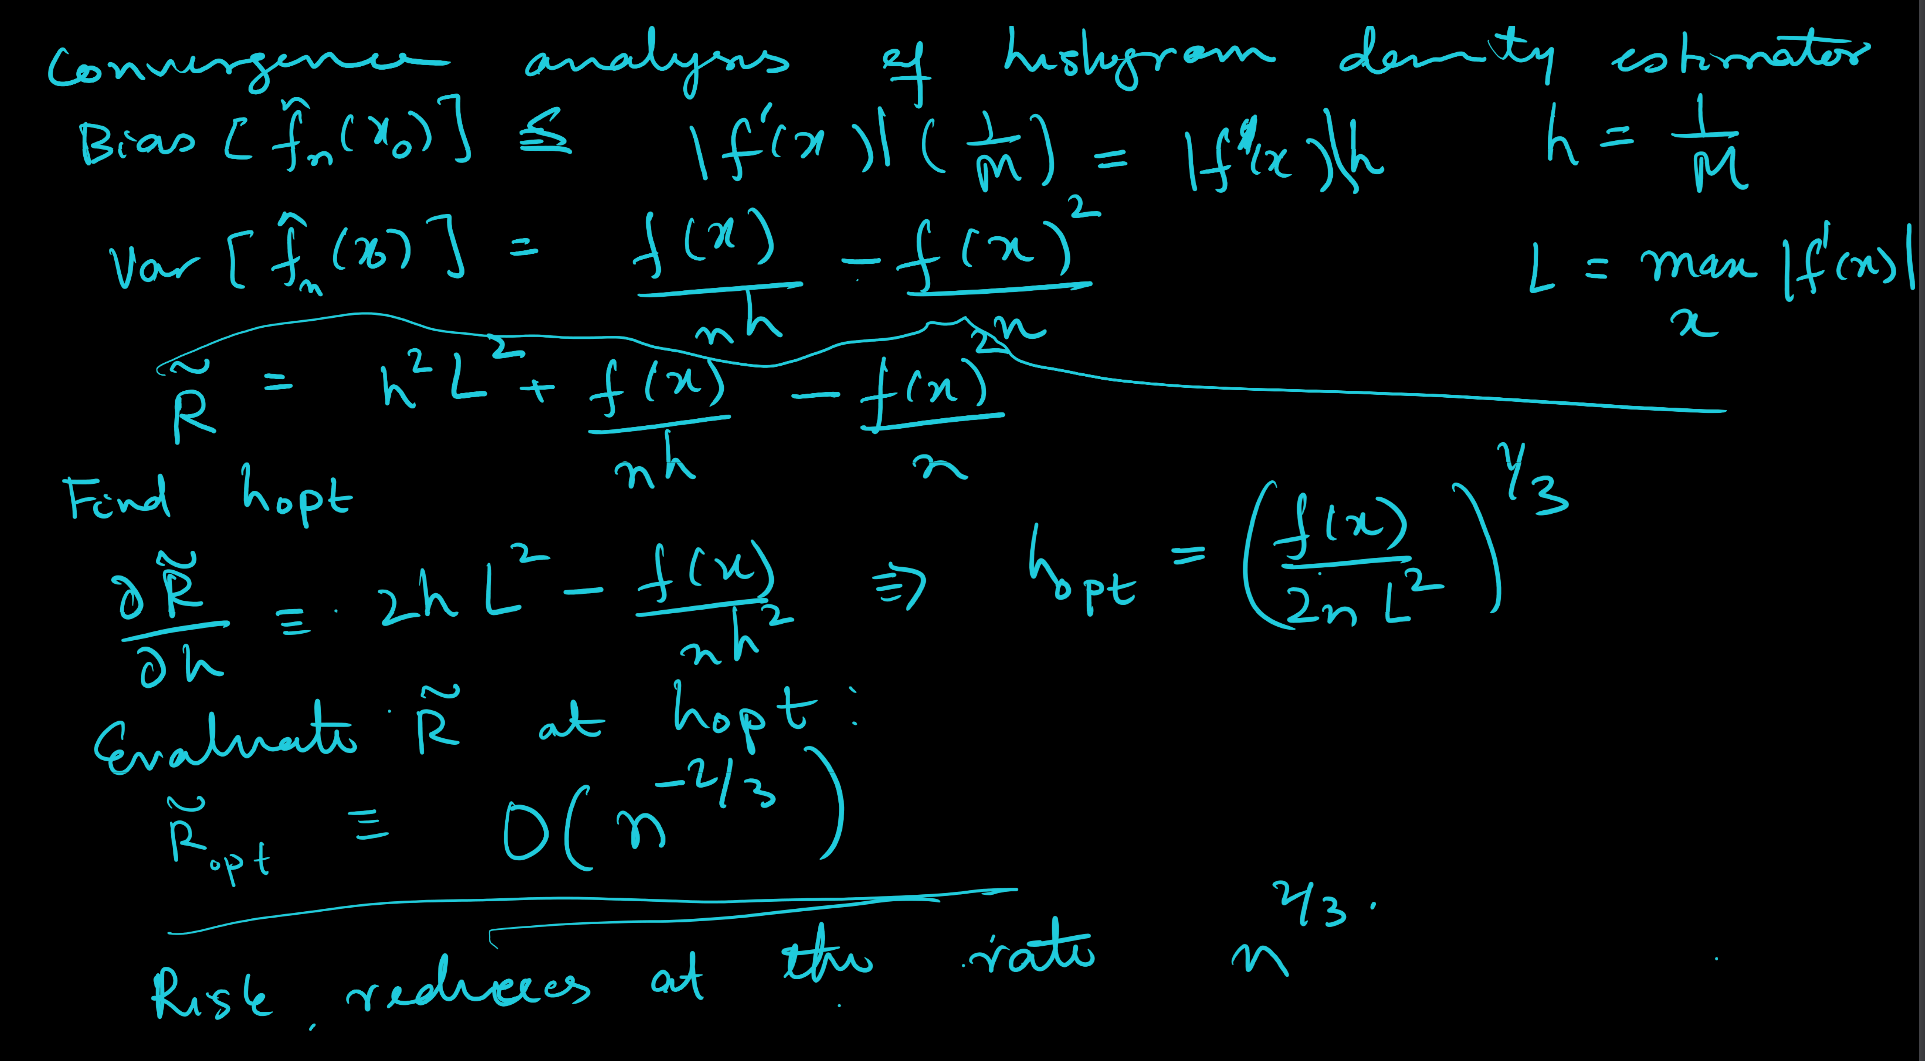 Convergence analysis of histogram density estimator
Bias [f̂ₙ(x₀)] ≤ |f'(x)| (1/M) = |f'(x)|h    h = 1/M
Var [f̂ₙ(x₀)] = f(x)/nh − f(x)²/n    L = max_x |f'(x)|
R̃ = h²L² + f(x)/nh − f(x)²/n
Find hopt
∂R̃/∂h ≡ 2hL² − f(x)/nh² ⇒ hopt = (f(x)/2nL²)^1/3
Evaluate R̃ at hopt:
R̃opt ≡ O(n^−2/3)
Risk reduces at the rate n^2/3.